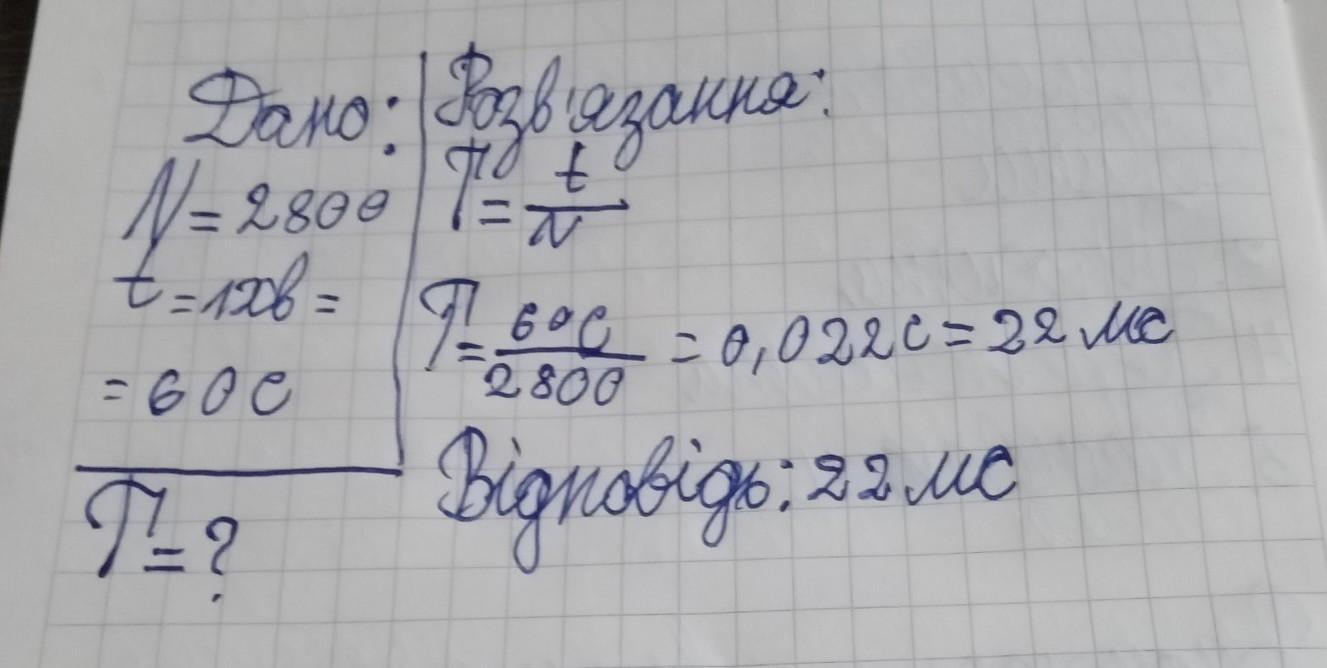 Дано:
N = 2800
t = 1хв =
= 60 с
T = ?
Розв'язання:
T = t/N
T = 60с/2800 = 0,022с = 22 мс
Відповідь: 22 мс